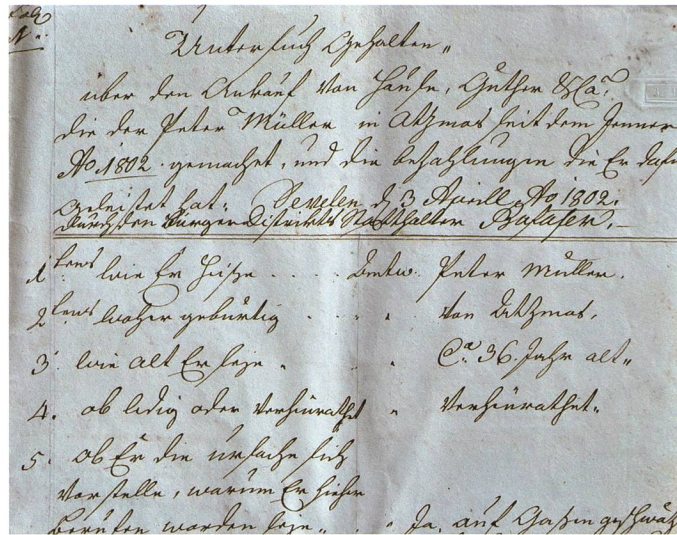 Fol:
N:.
Untersuch Gehalten„
über den Ankauf von Häuser, Güther &Ca:
die der Peter Müller in Atzmos seit dem Jenner
Ao 1802. gemachet, und die bezahlungen die Er dafür
geleistet hat: Sevelen d 3 Aprill Ao 1802.
durch den Bürger Distrikts Statthalter
1tens wie Er Heiße . . . . Antw. Peter Müller.
2tens woher gebürtig . . „ von Atzmos.
3. wie alt Er seje „ „ Ca: 36. Jahr alt„
4. ob ledig oder verheurathet „ Verheurathet„
5. ob Er die ursache sich
vorstelle, warum Er hieher
berufen worden seje„ . . „ Ja, auf